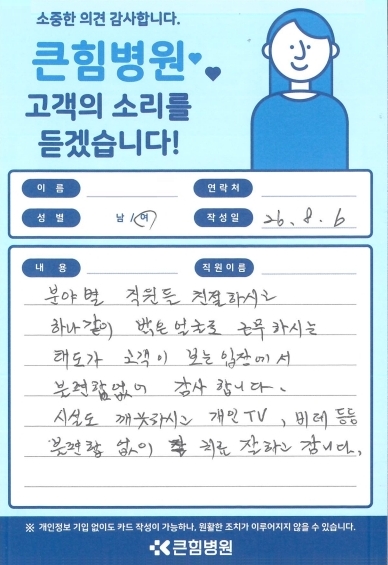 소중한 의견 감사합니다.
큰힘병원
고객의 소리를
듣겠습니다!
이 름
연락처
성 별 남 / 여
작성일 26. 8. 6
내 용
직원이름
분야별 직원들 친절하시고
하나같이 밝은 얼굴로 근무하시는
태도가 고객이 보는 입장에서
불편함없어 감사합니다.
시설도 깨끗하시고 개인TV, 비데 등등
불편함 없이 치료 잘하고 갑니다.
※ 개인정보 기입 없이도 카드 작성이 가능하나, 원활한 조치가 이루어지지 않을 수 있습니다.
큰힘병원